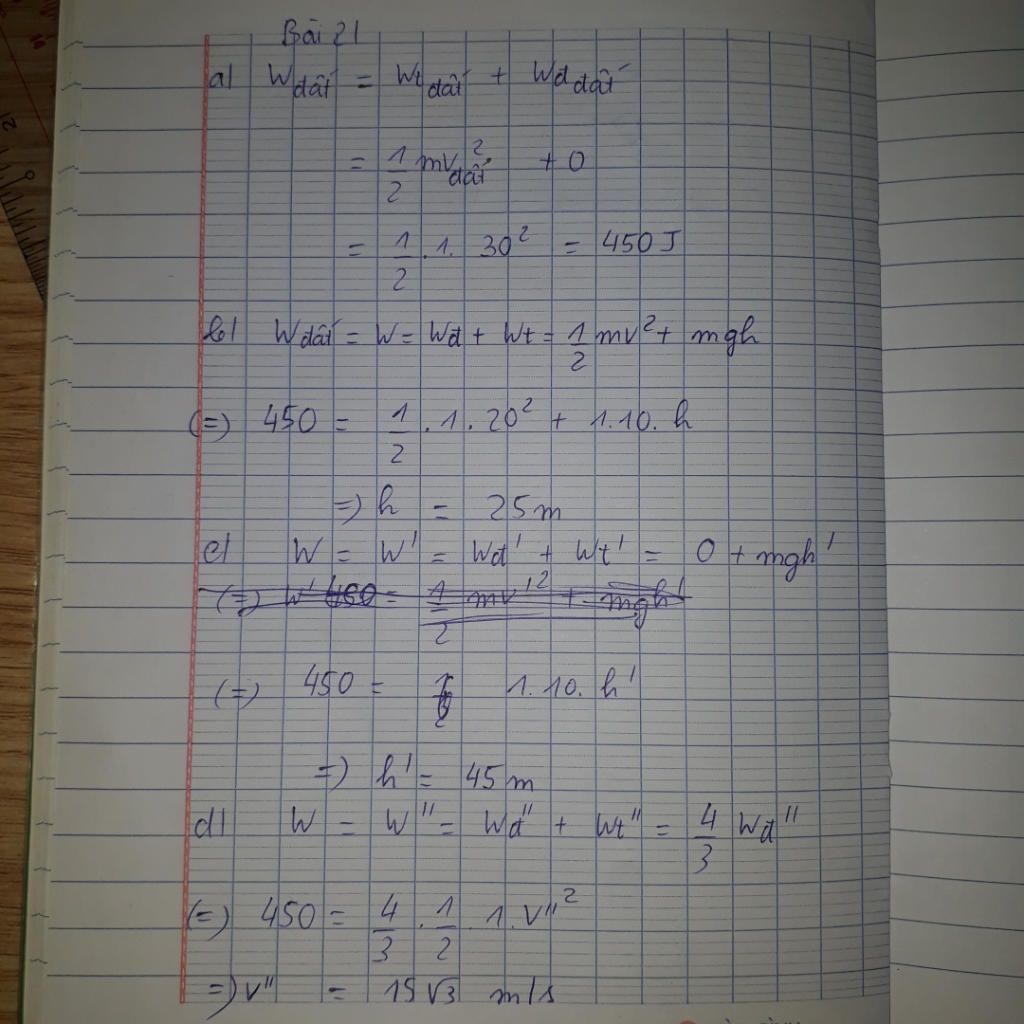 Bài 21
a) Wđất = Wt đất + Wđ đất
= 1/2 mv đất ² + 0
= 1/2 . 1 . 30² = 450 J
b) Wđất = W = Wđ + Wt = 1/2 mv² + mgh
(=) 450 = 1/2 . 1 . 20² + 1.10. h
=) h = 25 m
c) W = W' = Wđ' + Wt' = 0 + mgh'
(=) W' 450 = 1/2 mv'² + mgh'
(=) 450 = 1.10. h'
=) h' = 45 m
d) W = W'' = Wđ'' + Wt'' = 4/3 Wđ''
(=) 450 = 4/3 . 1/2 . 1. v''²
=) v'' = 15√3 m/s